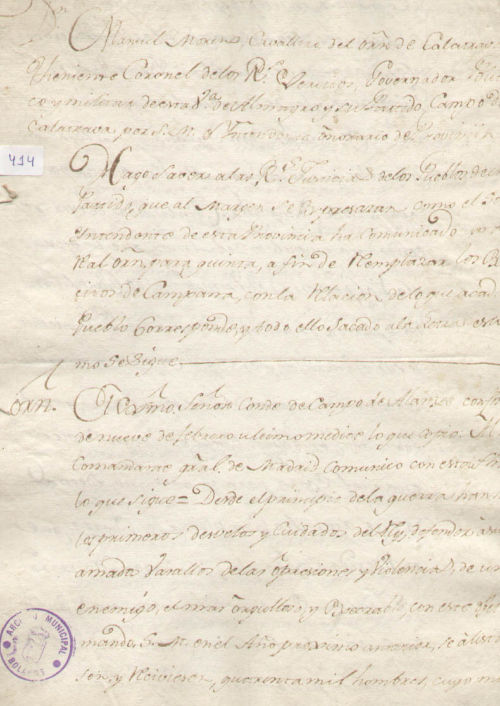 Manuel Moreno, Cavallero del orn de Calatrava
Theniente Coronel de los Rs. Exercitos, Governador Poli
co y militar de esta Va. de Almagro y su Partido, Campo de
Calatrava, por S. M. Yntendente honorario de Provincia
414
Hago saver a las Rs. Justicias de los Pueblos de
Partido, que al Margen se expresaran, como el Sr.
Yntendente de esta Provincia ha comunicado
Real orn para quinta, a fin de Remplazar los
citos de Campaña, con la Relacion de lo que a cada
Pueblo Corresponde, y todo ello sacado a la letra es
mo se sigue
Orn.
El Exmo. Señor Conde de Campo de Alange con
de nueve de febrero ultimo me dice lo que copio. Al
Comandante gral. de Madrid comunico con esta
lo que sigue = Desde el principio de la guerra han
los primeros desvelos y cuidados del Rey, defender a su
amados Vasallos de las opresiones y Violencias, de un
enemigo, el mas orgulloso, y
mando, S. M. en el Año proximo anterior, se alista
sen, y Reuniesen, quarenta mil hombres, cuyo
ARCHIVO MUNICIPAL
BOLAÑOS